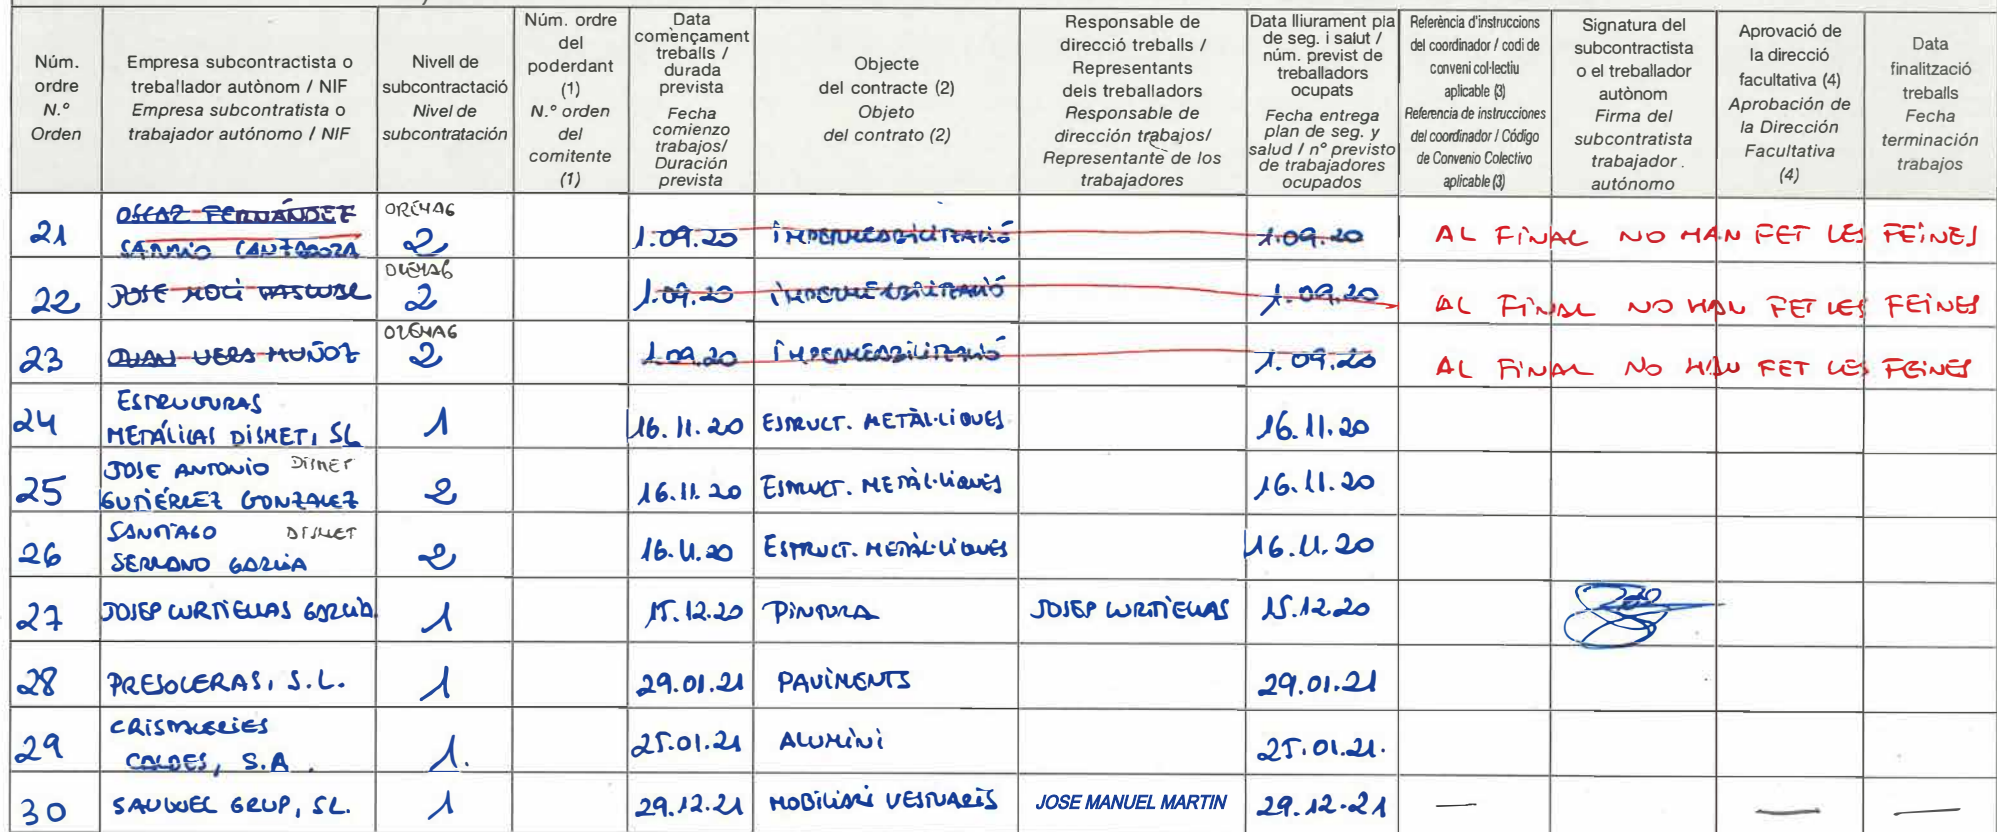 Núm. ordre N.º Orden
Empresa subcontractista o treballador autònom / NIF Empresa subcontratista o trabajador autónomo / NIF
Nivell de subcontractació Nivel de subcontratación
Núm. ordre del poderdant (1) N.º orden del comitente (1)
Data començament treballs / durada prevista Fecha comienzo trabajos/ Duración prevista
Objecte del contracte (2) Objeto del contrato (2)
Responsable de direcció treballs / Representants dels treballadors Responsable de dirección trabajos/ Representante de los trabajadores
Data lliurament pla de seg. i salut / núm. previst de treballadors ocupats Fecha entrega plan de seg. y salud / nº previsto de trabajadores ocupados
Referència d'instruccions del coordinador / codi de conveni col·lectiu aplicable (3) Referencia de instrucciones del coordinador / Código de Convenio Colectivo aplicable (3)
Signatura del subcontractista o el treballador autònom Firma del subcontratista trabajador . autónomo
Aprovació de la direcció facultativa (4) Aprobación de la Dirección Facultativa (4)
Data finalització treballs Fecha terminación trabajos
21 OSCAR FERNÁNDEZ OREMAG 2 1.09.20 IMPERMEABILITZACIÓ 1.09.20 AL FINAL NO HAN FET LES FEINES
22 JOSE PASCUAL OREMAG 2 1.09.20 IMPERMEABILITZACIÓ 1.09.20 AL FINAL NO HAN FET LES FEINES
23 JUAN VERA MUÑOZ OREMAG 2 1.09.20 IMPERMEABILITZACIÓ 1.09.20 AL FINAL NO HAN FET LES FEINES
24 ESTRUCTURAS METÁLICAS DISMET, SL 1 16.11.20 ESTRUCT. METÀL·LIQUES 16.11.20
25 JOSE ANTONIO DISMET GUTIÉRREZ GONZALEZ 2 16.11.20 ESTRUCT. METÀL·LIQUES 16.11.20
26 SANTIAGO DISMET SERRANO GARCIA 2 16.11.20 ESTRUCT. METÀL·LIQUES 16.11.20
27 JOSEP CURTIELLAS GARCIA 1 15.12.20 PINTURA JOSEP CURTIELLAS 15.12.20
28 PRESOLERAS, S.L. 1 29.01.21 PAVIMENTS 29.01.21
29 CRISTALERIES COLDES, S.A. 1. 25.01.21 ALUMINI 25.01.21.
30 SAUWEL GRUP, SL. 1 29.12.21 MOBILIARI VESTUARIS JOSE MANUEL MARTIN 29.12-21 — — —